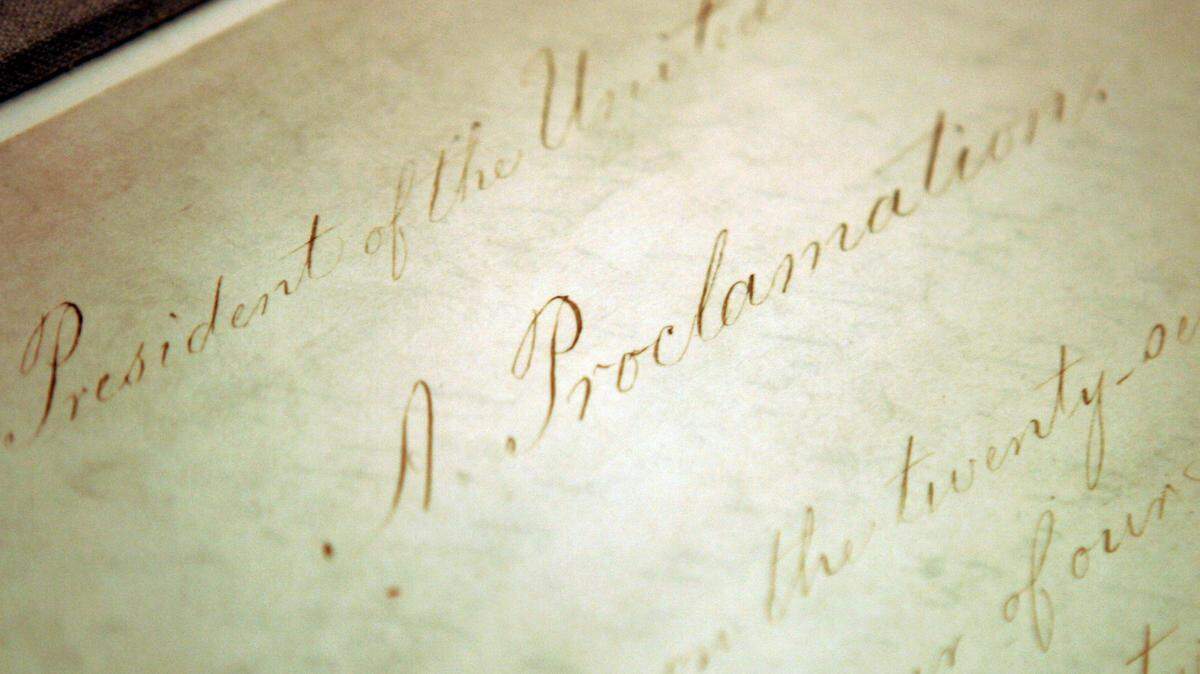 President of the United
A Proclamation.
the twenty-se
of our